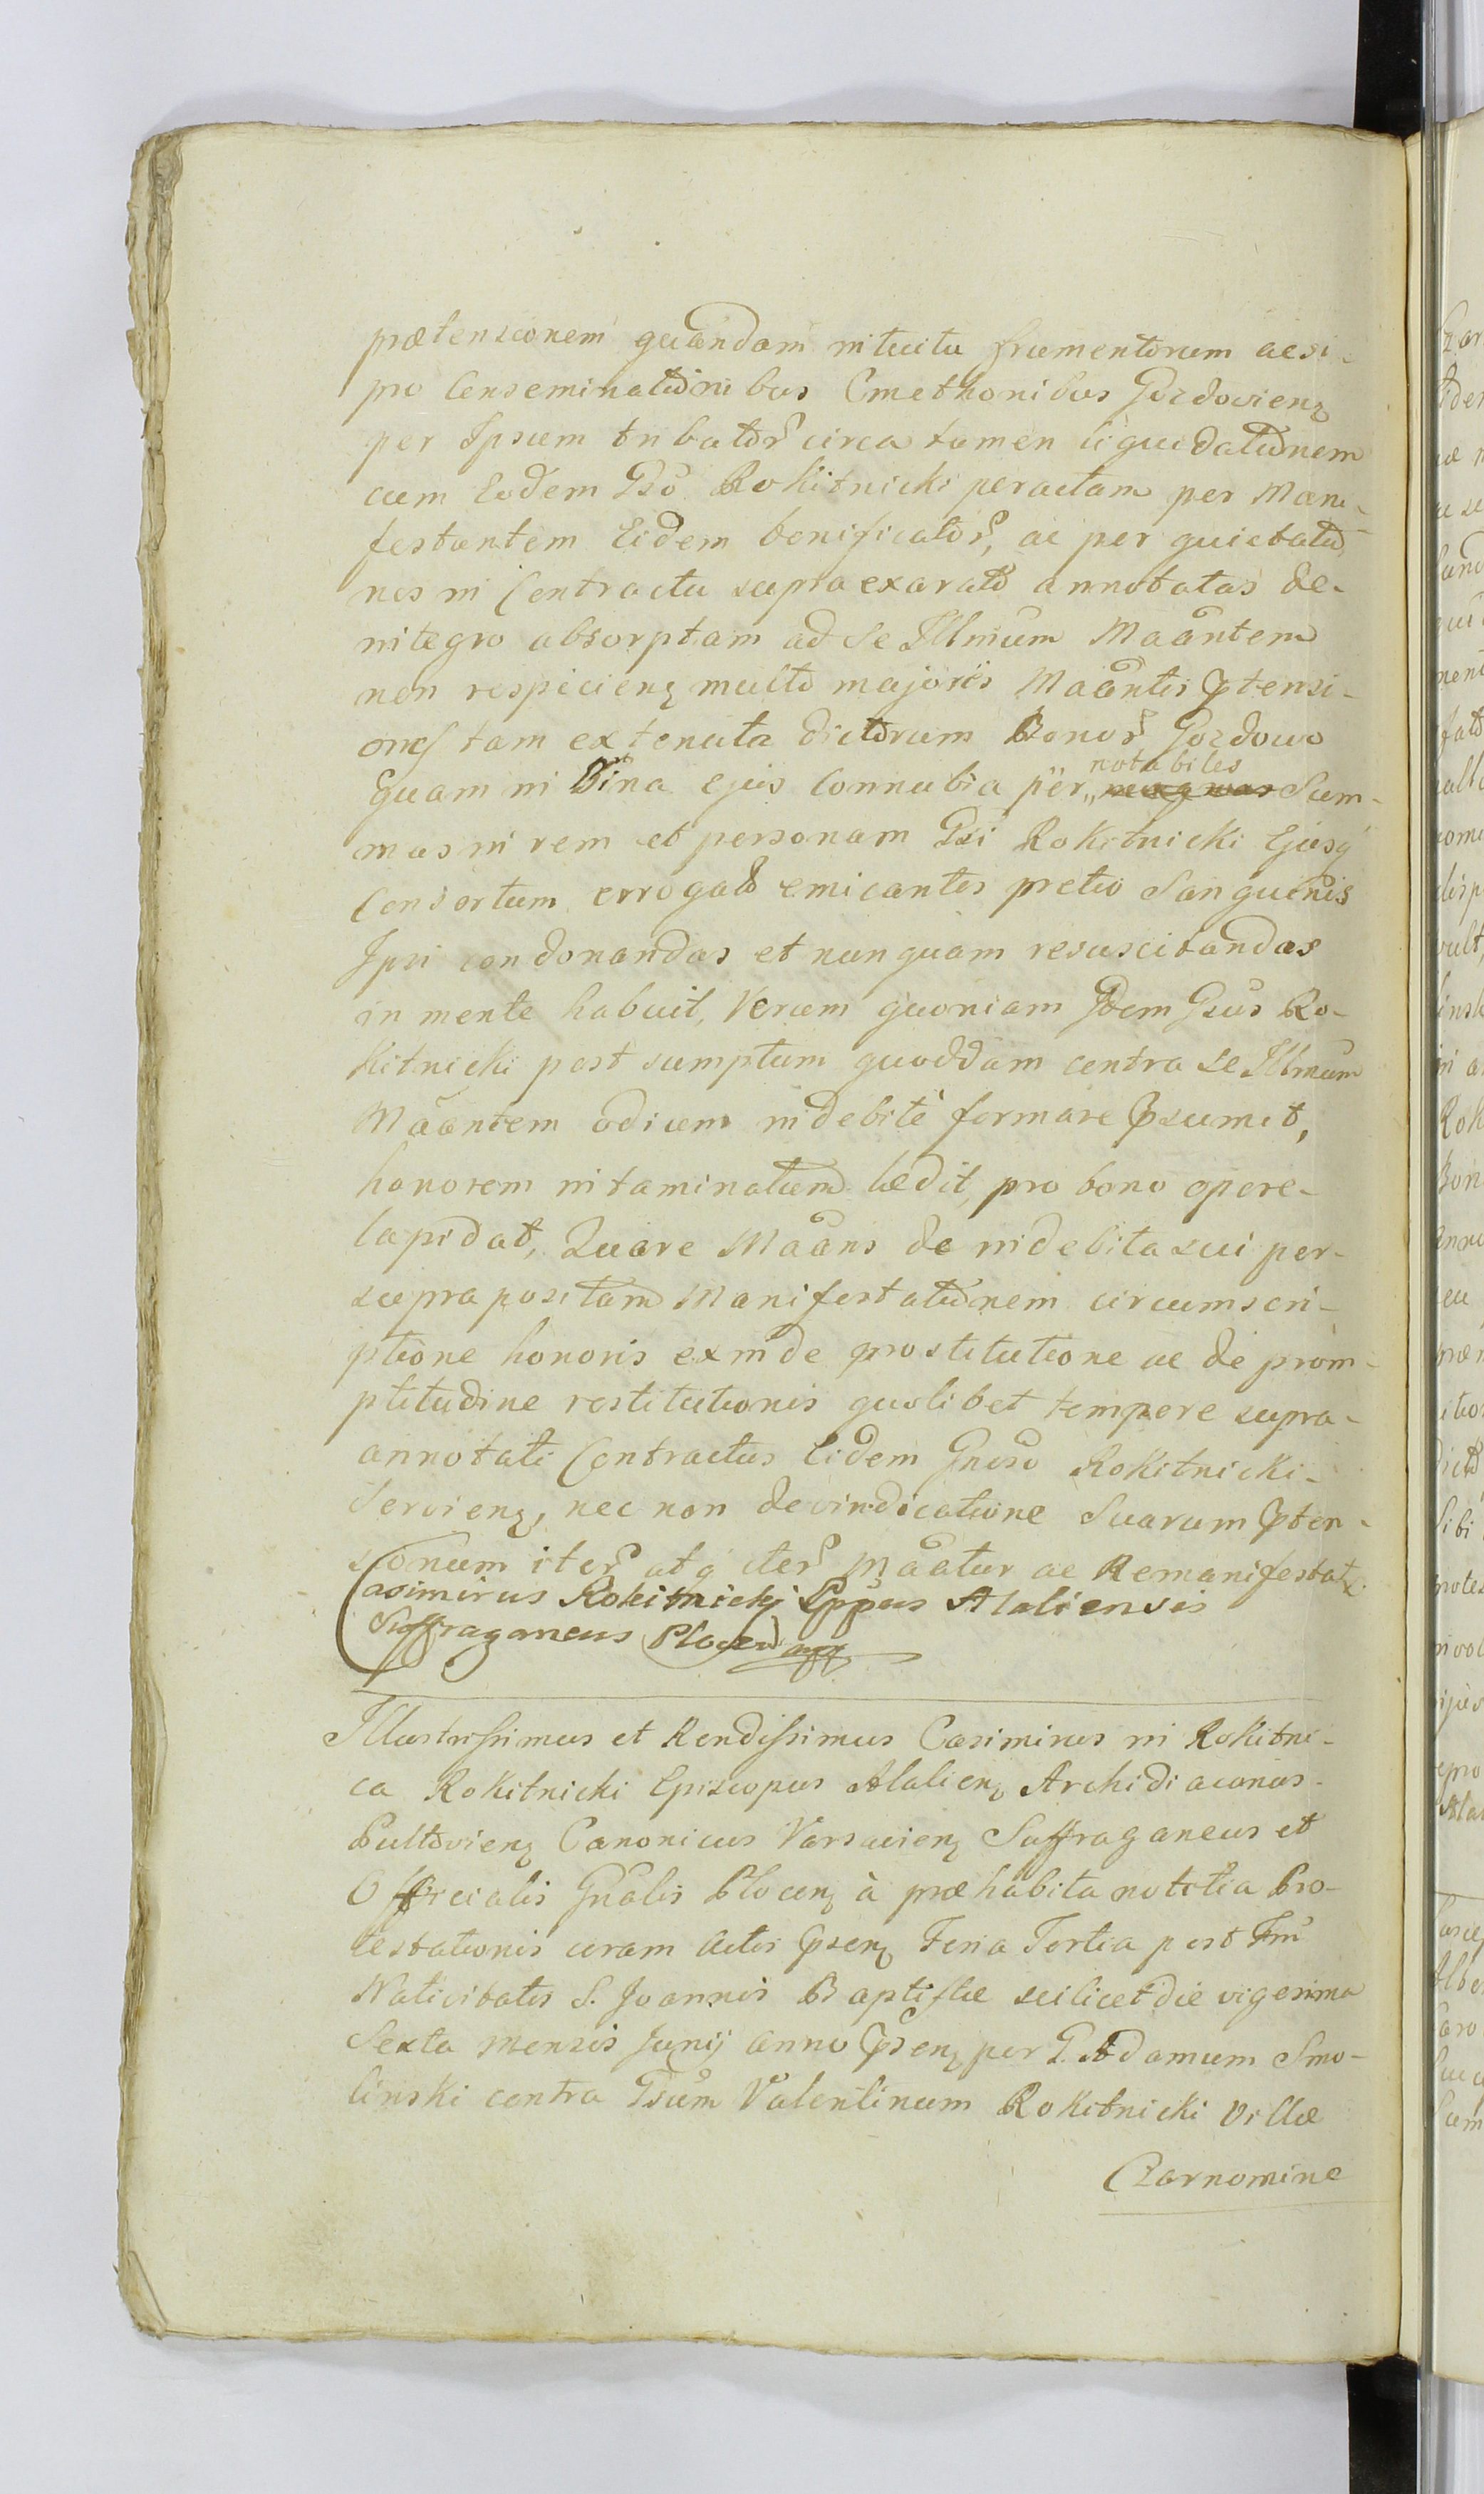 prætensionem quandam intuitu frumentorum acsi-
pro Conseminationibus Cmethonibus Gozdoviens
per Ipsum tributor̃ circa tamen liquidationem
cum Eodem Gso Rokitnicki peractam per Mani-
festantem Eidem bonificator̃, ac per quietatio
nes in Contractu supra exarato annotatas de-
integro absorptam ad se Illmum Maantem
non respiciens multo majoris Maantis Ptensi-
ones tam ex tenuta dictorum Bonor̃ Gozdowo
quam in Bina ejus Connubia per notabiles Sum-
mas in rem et personam Gsi Rokitnicki Ejusq
Consortum errogato emicantes pretio Sanguinis
Ipsi condonandas et nunquam resuscitandas
in mente habuit, Verum quoniam Idem Gsus Ro-
kitnicki post sumptum quoddam contra se Illmum
Maantem odium indebitè formare Psumit,
honorem intaminatum lædit, pro bono opere-
lapidat, Quare Maans de indebita sui per-
supra positam Manifestationem circumscri-
ptione honoris exinde prostitutione ac de prom-
ptitudine restitutionis quolibet tempore supra-
annotati Contractus Eidem Gneroso Rokitnicki-
Serviens, nec non de vindicatione Suarum Pten-
sionum iter̃ atq iter̃ Maatur ac Remanifestat
Casimirus Rokitnickj Eppus Alaliensis
Suffraganeus Plocen mpp
Illustrissimus et Rendissimus Casimirus in Rokitni-
ca Rokitnicki Episcopus Alaliens Archidiaconus-
Pultoviens Canonicus Varsaviens Suffraganeus et
Officialis Gnalis Plocens à præhabita notitia Pro-
testationis coram Actis Psens Feria Tertia post Fm
Nativitatis S. Joannis Baptistæ scilicet die vigesima
Sexta mensis Junij anno Psens per G. Adamum Smo-
linski contra Gsum Valentinum Rokitnicki Villæ
Czarnomine